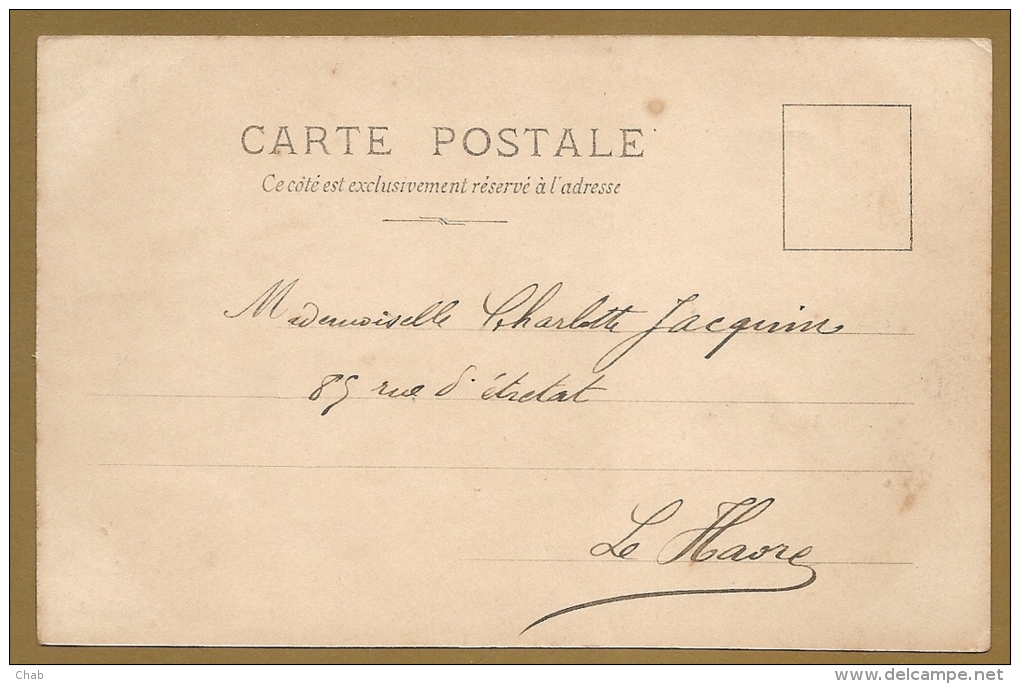 CARTE POSTALE
Ce côté est exclusivement réservé à l'adresse
Mademoiselle Charlotte Jacquin
85 rue d'étretat
Le Havre
Chab
delcampe.net